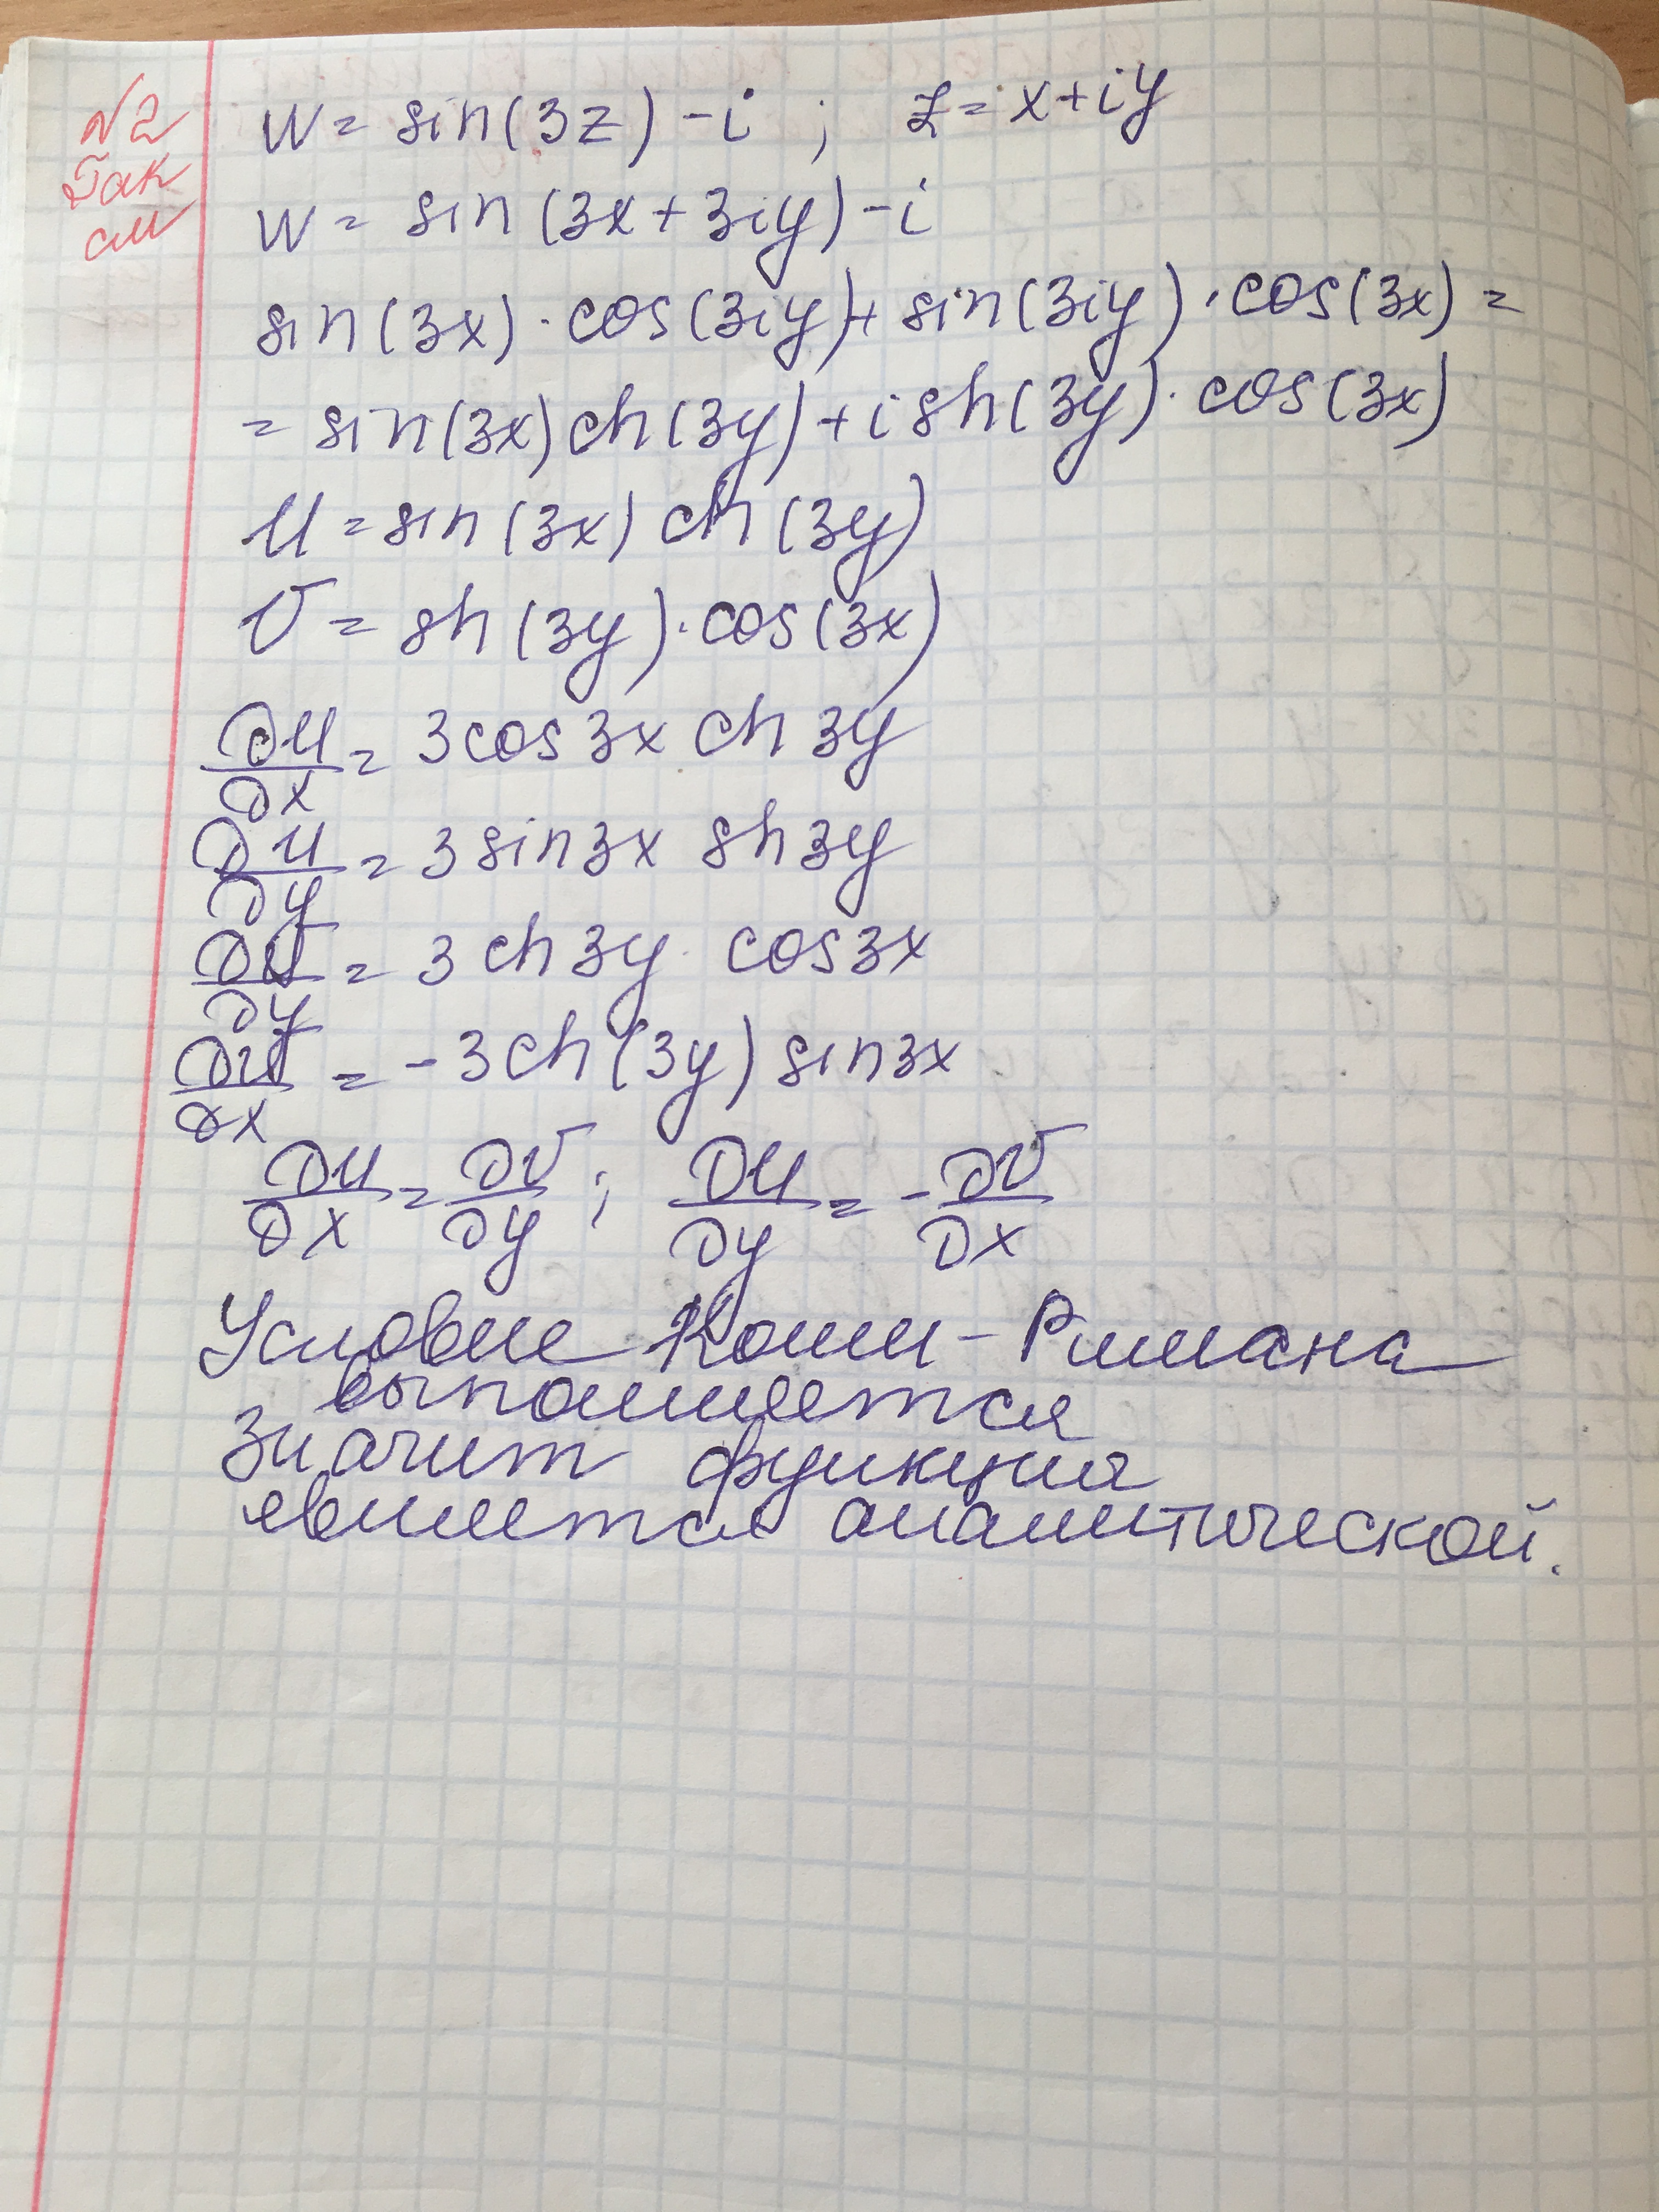 N2
W = sin(3z) - i ; z = x+iy
W = sin (3x + 3iy) - i
sin(3x) · cos(3iy) + sin(3iy) · cos(3x) =
= sin(3x) ch(3y) + i sh(3y) · cos(3x)
U = sin (3x) ch (3y)
V = sh (3y) · cos(3x)
∂U/∂x = 3 cos 3x ch 3y
∂U/∂y = 3 sin 3x sh 3y
∂V/∂y = 3 ch 3y cos 3x
∂V/∂x = -3 ch (3y) sin 3x
∂U/∂x = ∂V/∂y ; ∂U/∂y = -∂V/∂x
Условие Коши - Римана
выполняется
Значит функция
является аналитической.